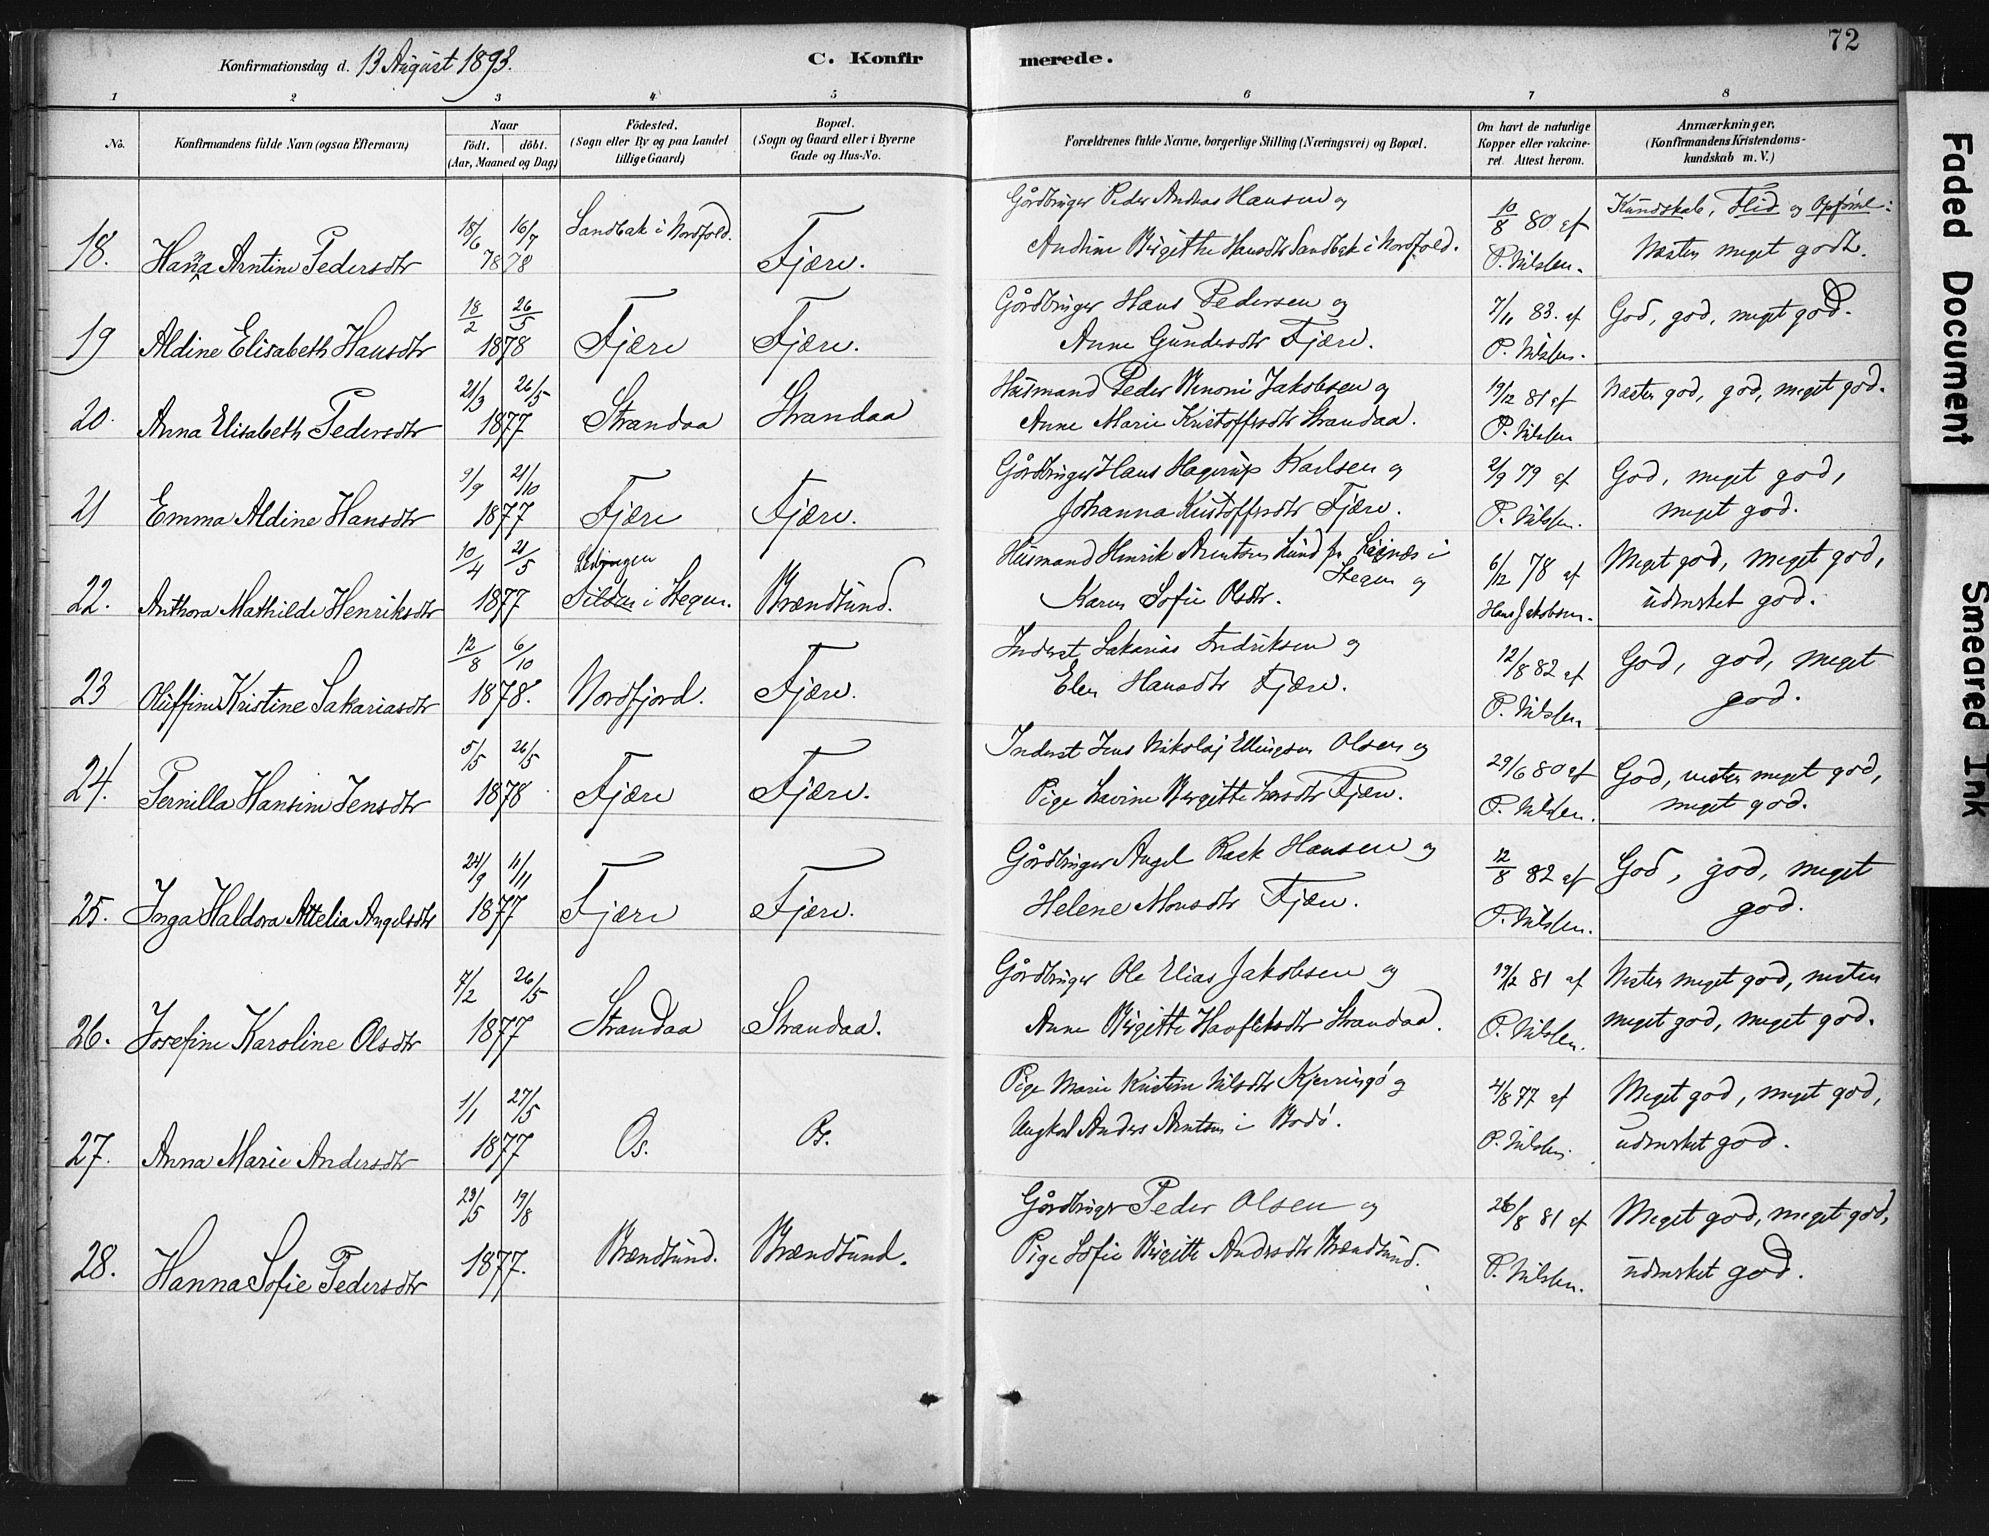 72
Konfirmationsdag d. 13 August 1893.
C. Konfirmerede.
1 2 3 4 5 6 7 8
No.
Konfirmandens fulde Navn (ogsaa Efternavn)
Naar
födt. döbt.
(Aar, Maaned og Dag)
Födested.
(Sogn eller By og paa Landet
tillige Gaard)
Bopæl.
(Sogn og Gaard eller i Byerne
Gade og Hus-No.
Forældrenes fulde Navne, borgerlige Stilling (Næringsvei) og Bopæl.
Om havt de naturlige
Kopper eller vakcine-
ret. Attest herom.
Anmærkninger.
(Konfirmandens Kristendoms-
kundskab m. V.)
18. Hanna Arntine Pedersdtr 18/6 78 16/7 78 Sandbak i Nordfold. Fjære.
Gårdbruger Peder Andreas Hansen og
Andine Birgitthe Hansdtr Sandbak i Nordfold.
10/8 80 af
P. Nilsen.
Kundskab, Flid og Opførsel:
Næsten meget godt.
19 Aldine Elisabeth Hansdtr 18/2 26/5 1878 Fjære Fjære.
Gårdbruger Hans Pedersen og
Anne Gundersdtr Fjære.
7/11 83. af
P. Nilsen.
God, god, meget god.
20. Anna Elisabeth Pedersdtr 21/3 26/5 1877 Strandaa Strandaa
Husmand Peder Benoni Jakobsen og
Anne Marie Kristoffersdtr Strandaa.
19/12 81 af
P. Nilsen
Næsten god, god, meget god.
21 Emma Aldine Hansdtr 9/9 21/10 1877 Fjære Fjære.
Gårdbruger Hans Hagerup Karlsen og
Johanna Kristoffersdtr Fjære.
2/9 79 af
P. Nilsen.
God, meget god,
meget god.
22. Anthora Mathilde Henriksdtr 10/4 21/5 1877 i Stegen. Brændsund.
Husmand Henrik Arntsen Lund fr. i
Stegen og
Karen Sofie Olsdtr.
6/12 78 af
Hans Jakobsen.
Meget god, meget god,
udmerket god.
23 Oluffine Kristine Sakariasdtr 12/8 6/10 1878. Nordfjord. Fjære.
Inderst Sakarias Fredriksen og
Elen Hansdtr Fjære.
12/8 82 af
P. Nilsen
God, god, meget
god.
24. Pernilla Hansine Jensdtr 5/5 26/5 1878 Fjære Fjære.
Inderst Jens Nikolaj Ellingsen Olsen og
Pige Lavine Bergitte Larsdtr Fjære.
29/6 80 af
P. Nilsen.
God, nesten meget god,
meget god.
25. Inga Haldora Attelia Angelsdtr 24/9 11/11 1877 Fjære Fjære.
Gårdbruger Angel Rask Hansen og
Helene Monsdtr Fjære.
12/8 82 af
P. Nilsen.
God, god, meget
god.
26. Josefine Karoline Olsdtr 7/2 26/5 1877 Strandaa Strandaa.
Gårdbruger Ole Elias Jakobsen og
Anne Birgitte Strandaa.
19/12 81 af
P. Nilsen.
Nesten meget god, nesten
meget god, meget god.
27. Anna Marie Andersdtr 1/1 27/5 1877 Os. Os.
Pige Marie Kristine Nilsdtr Kjerringø og
Ungkarl Anders Arntsen i Bodø.
4/8 77 af
P. Nilsen.
Meget god, meget god,
udmerket god.
28. Hanna Sofie Pedersdtr 23/5 19/8 1877. Brændsund. Brændsund.
Gårdbruger Peder Olsen og
Pige Sofie Birgitte Andersdtr Brændsund.
26/8 81 af
P. Nilsen.
Meget god, meget god,
udmerket god.
Faded Document
Smeared Ink